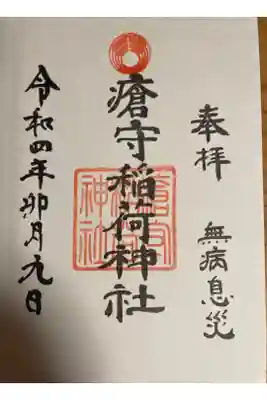 奉拝 無病息災
瘡守稲荷神社
令和四年卯月九日